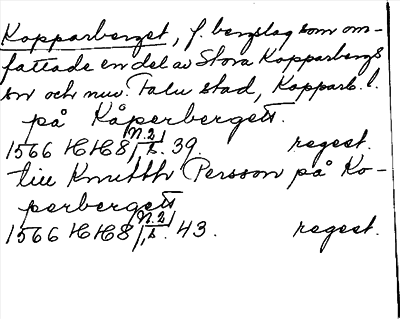 Kopparberget, f. bergslag som om-
fattade en del av Stora Kopparbergs
sn och nuv. Falu stad, Kopparb. l.
på Kåperbergett.
1566 HH8 N.2, b. 39. regest.
till Knutth Persson på Ko-
perbergett
1566 HH8 N.2, b. 43. regest.